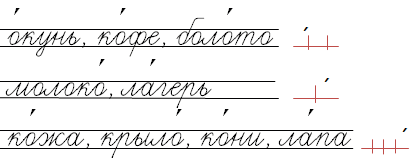 окунь, кофе, болото
молоко, лагерь
кожа, крыло, кони, лапа